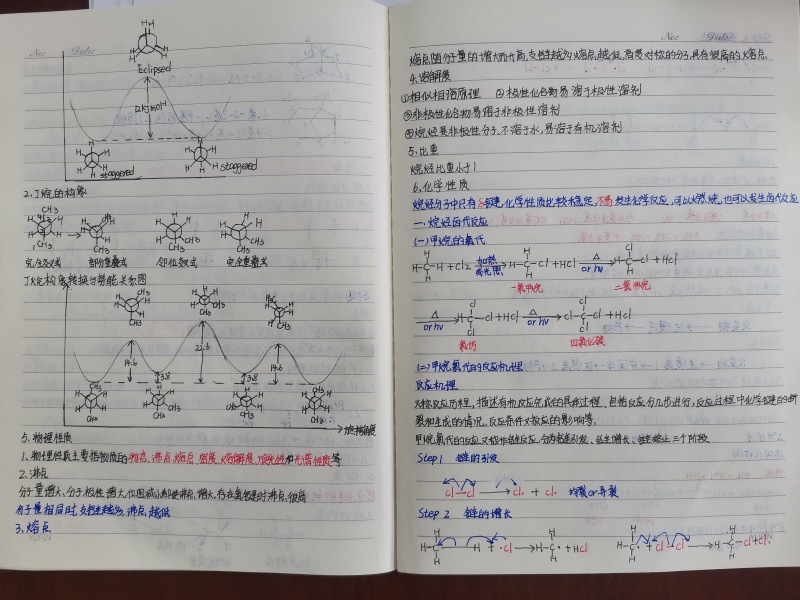 No: Date:
H H
Eclipsed
12kJ/mol
staggered staggered
2.丁烷的构象
完全交叉式 部分重叠式 邻位交叉式 完全重叠式
丁烷构象转换与势能关系图
14.6 3.8 22.6 3.8 14.6
旋转角度
5.物理性质
1、物理性质主要指物质的物态、沸点、熔点、密度、溶解度、折光性和光谱性质等
2.沸点
分子量增大、分子极性增大,沸点增大,存在氢键时沸点很高
分子量相同时,支链越多,沸点越低
3、熔点
No: Date:
熔点随分子量的增大而升高,支链越多熔点越低,高度对称的分子具有很高的熔点
4.溶解度
①相似相溶原理 ②极性化合物易溶于极性溶剂
③非极性化合物易溶于非极性溶剂
④烷烃是非极性分子,不溶于水,易溶于有机溶剂
5、比重
烷烃比重小于1
6、化学性质
烷烃分子中只有δ键,化学性质比较稳定,不易发生化学反应,可以燃烧,也可以发生卤代反应
一、烷烃卤代反应
(一)甲烷的氯代
H-C-H + Cl2 加热或光照 → H-C-Cl + HCl △ or hν → H-C-Cl + HCl
一氯甲烷 二氯甲烷
△ or hν → H-C-Cl + HCl △ or hν → Cl-C-Cl + HCl
氯仿 四氯化碳
(二)甲烷氯代的反应机理
反应机理
又称反应历程,描述有机反应完成的具体过程,包括反应分几步进行,反应过程中化学键的断
裂和生成的情况,反应条件对反应的影响等.
甲烷氯代的反应又称作链反应,分为链引发、链增长、链终止三个阶段
Step 1 链的引发
Cl-Cl → Cl· + Cl· 均裂or异裂
Step 2 链的增长
H-C-H + ·Cl → H-C· + HCl H-C· + Cl-Cl → H-C-Cl + Cl·